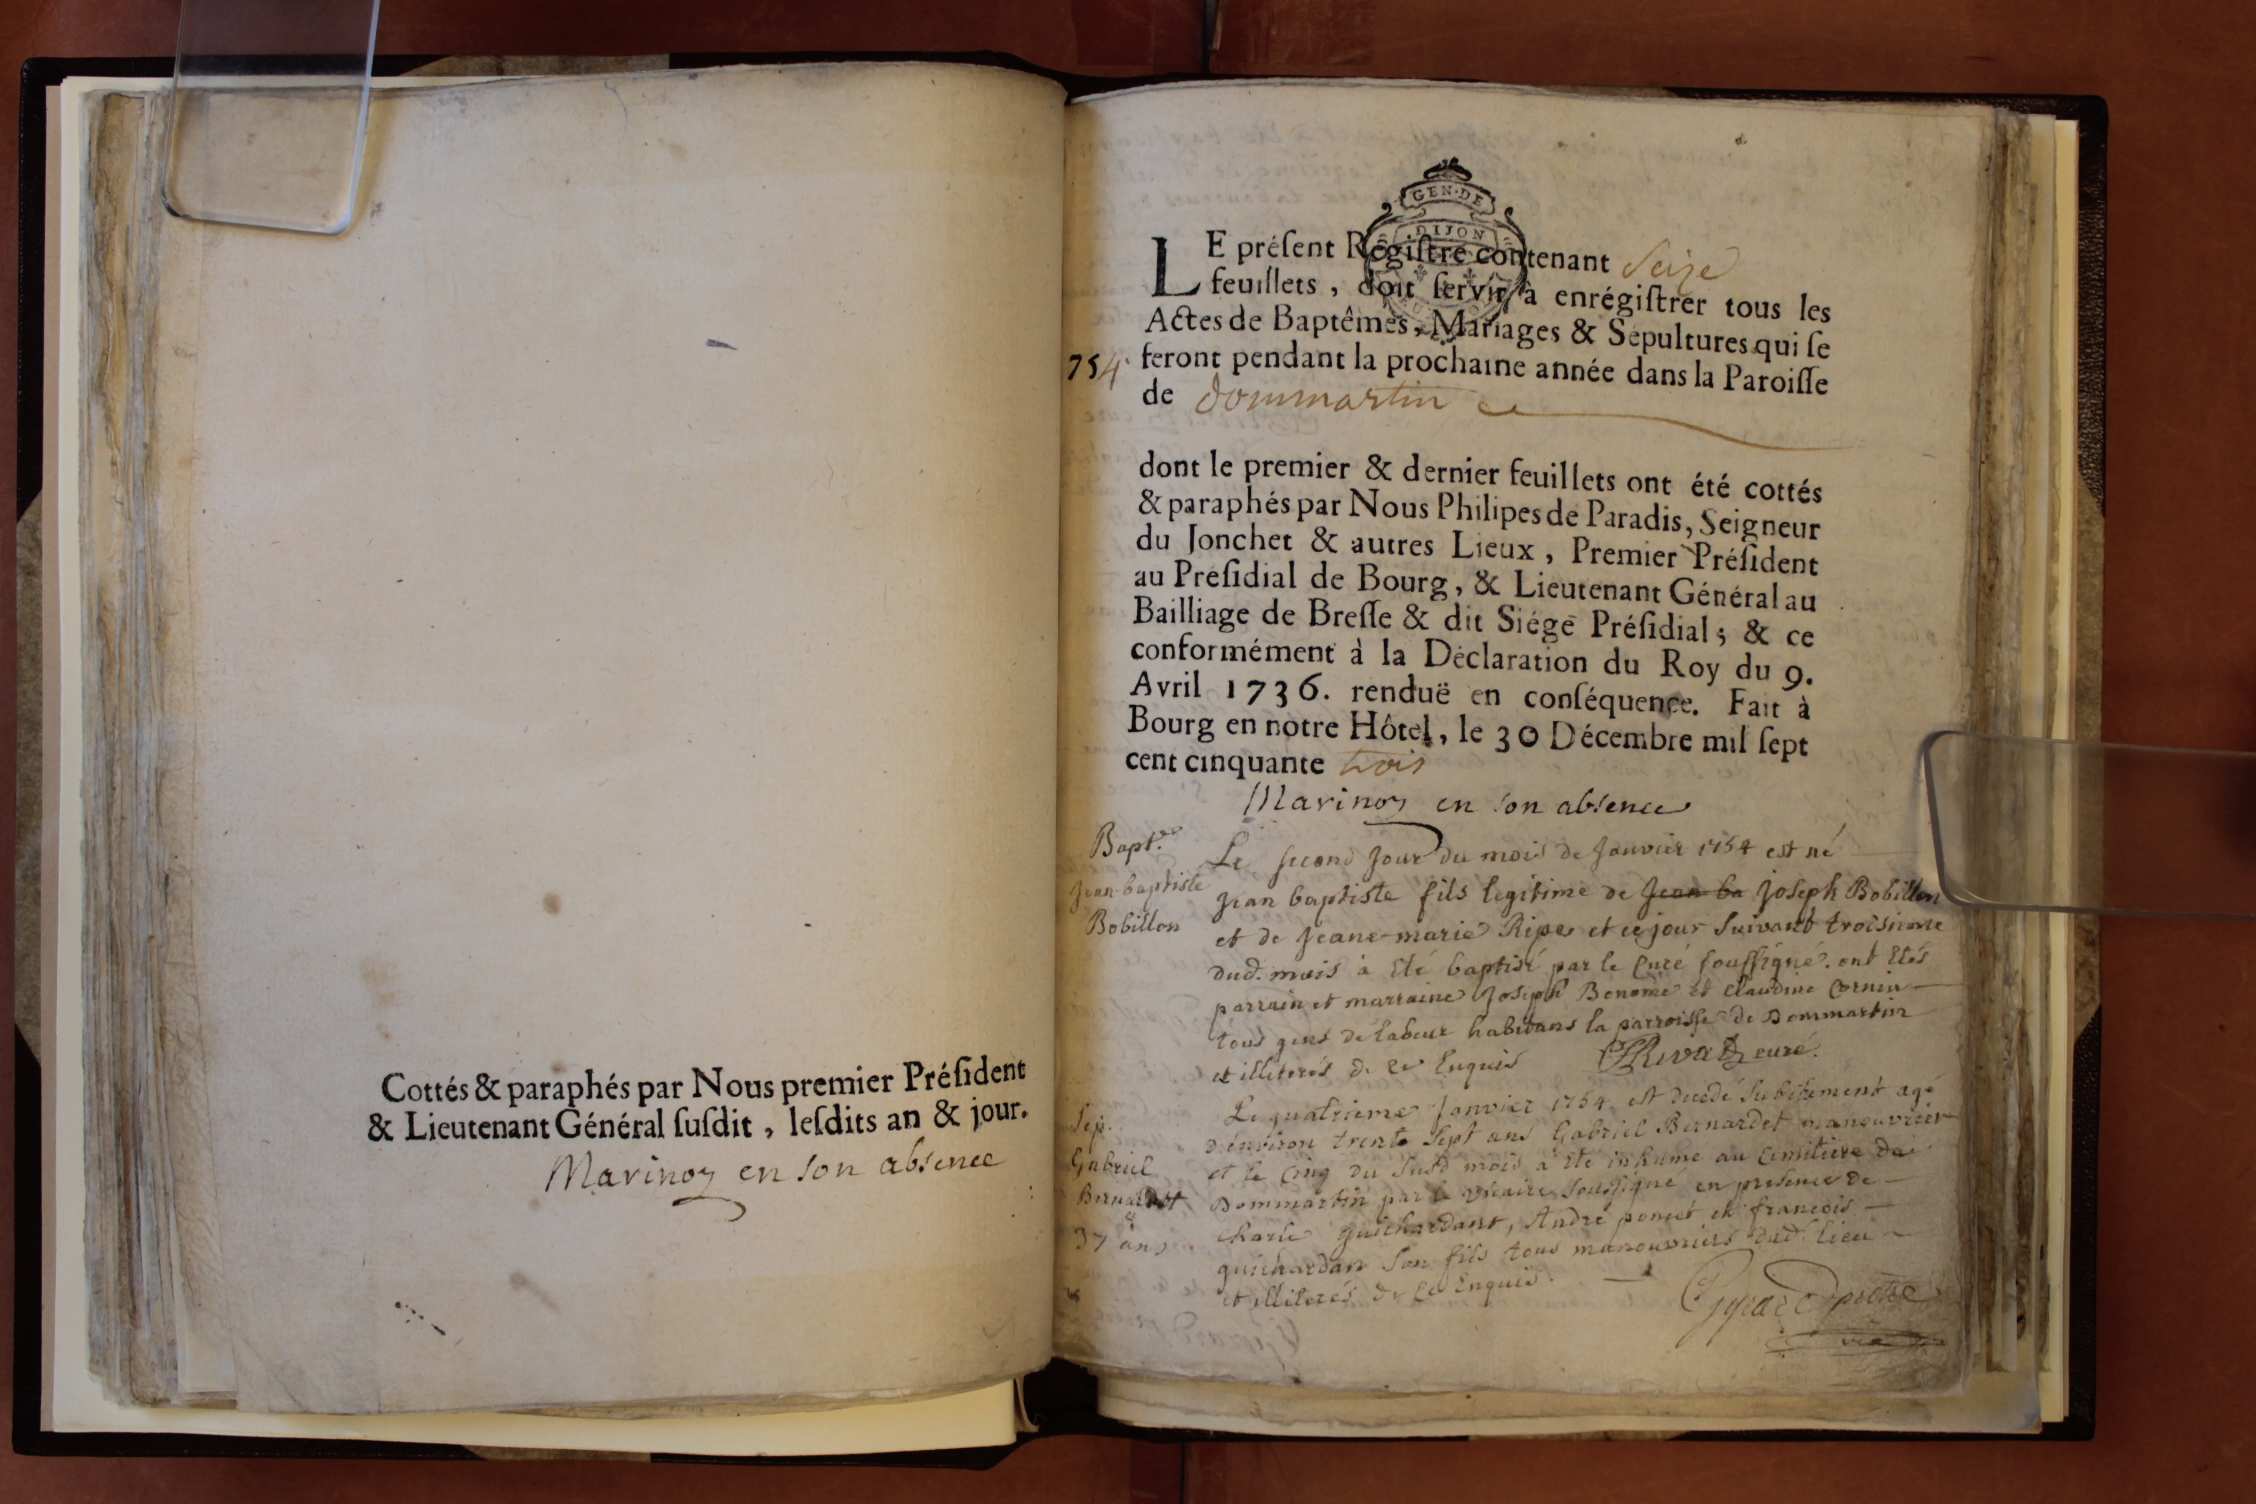 Cottés & paraphés par Nous premier Préſident
& Lieutenant Général ſuſdit, leſdits an & jour.
Marinon en son absence
GEN. DE
DIJON
LE préſent Regiſtre contenant Seize
feuillets, doit ſervir à enrégiſtrer tous les
Actes de Baptêmes, Mariages & Sepultures qui ſe
754. feront pendant la prochaine année dans la Paroiſſe
de dommartin
dont le premier & dernier feuillets ont été cottés
& paraphés par Nous Philipes de Paradis, Seigneur
du Jonchet & autres Lieux, Premier Préſident
au Preſidial de Bourg, & Lieutenant Général au
Bailliage de Breſſe & dit Siége Préſidial; & ce
conformément à la Déclaration du Roy du 9.
Avril 1736. renduë en conſéquence. Fait à
Bourg en notre Hôtel, le 30 Décembre mil ſept
cent cinquante trois
Marinon en son absence
Bapt.
Jean-baptiste
Bobillon
Le second Jour du mois de Janvier 1754 est né
Jean baptiste fils legitime de Jean ba Joseph Bobillon
et de Jeane-marie Ripe et ce jour suivant troisieme
dud. mois à Eté baptisé par le Curé soussigné. ont Etés
parrain et marraine Joseph Benome et Claudine Cornin
tous gens de labeur habitans la parroisse de Dommartin
et illiterés de ce Enquis curé.
Sep.
Gabriel
Bernardet
37 ans
Le quatrieme Janvier 1754. est decedé subitement agé
d'environ trente sept ans Gabriel Bernardet manouvrier
et le Cinq du susd mois a été inhumé au Cimitiere de
Dommartin par le vicaire soussigné en presence de
Charle guichardant, André poncet et françois
guichardan son fils tous manouvriers dud. lieu
et illiterés de ce Enquis.